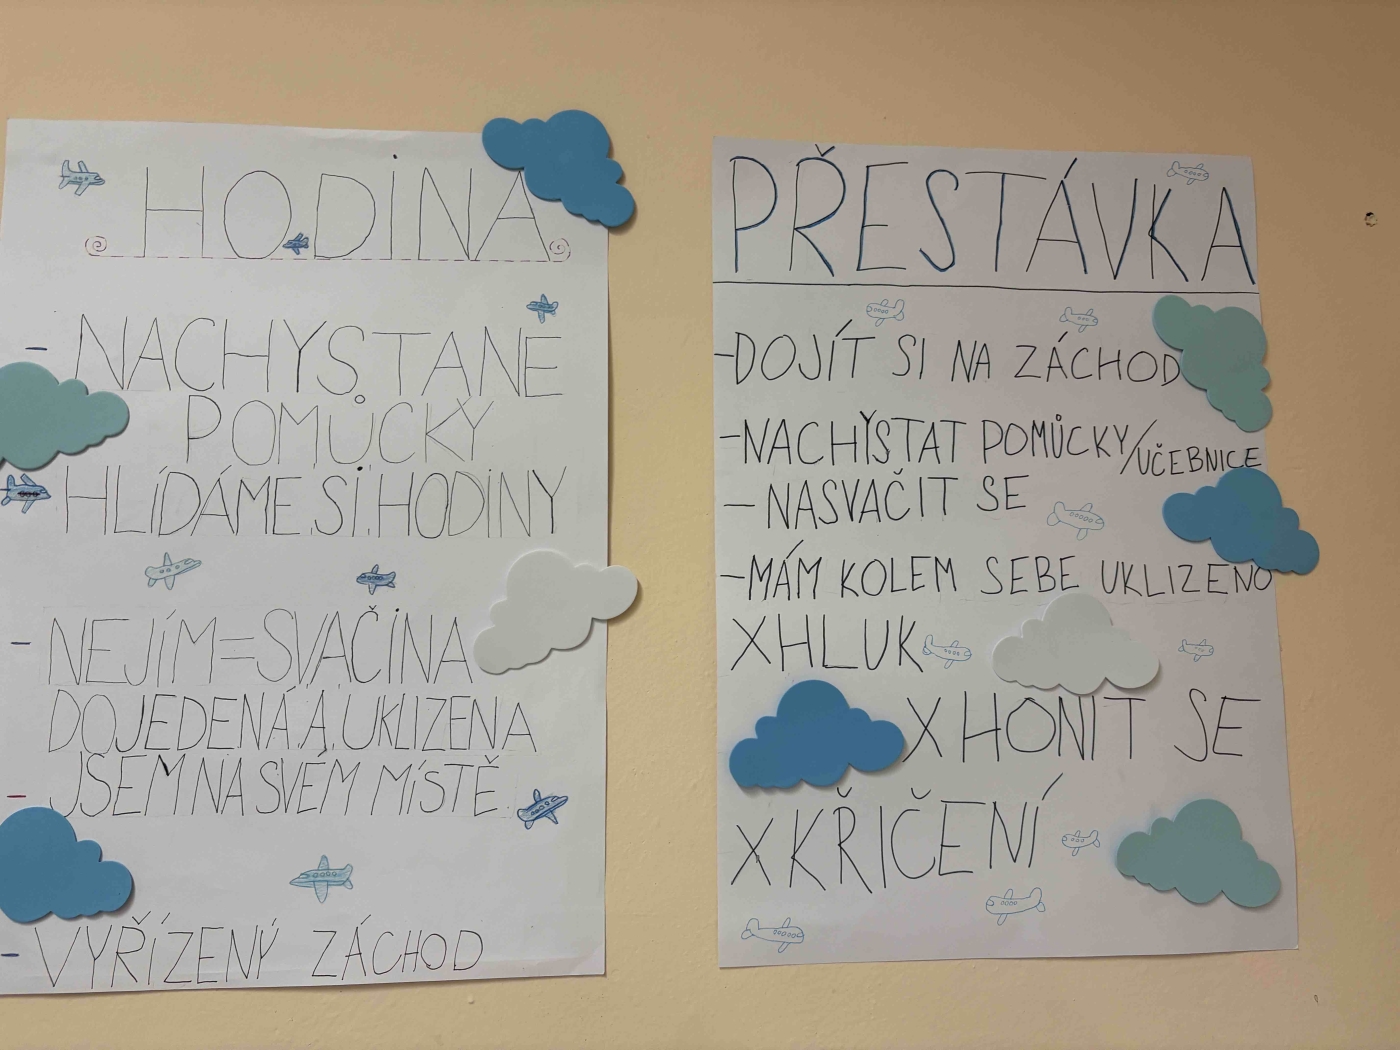 HODINA
- NACHYSTANE
POMŮCKY
HLÍDÁME.SI.HODINY
- NEJÍM=SVAČINA
DOJEDENÁ.A.UKLIZENA
- JSEM NA SVÉM MÍSTĚ
- VYŘÍZENÝ ZÁCHOD
PŘESTÁVKA
-DOJÍT SI NA ZÁCHOD
-NACHYSTAT POMŮCKY/UČEBNICE
- NASVAČIT SE
-MÁM KOLEM SEBE UKLIZENO
X HLUK
X HONIT SE
X KŘIČENÍ